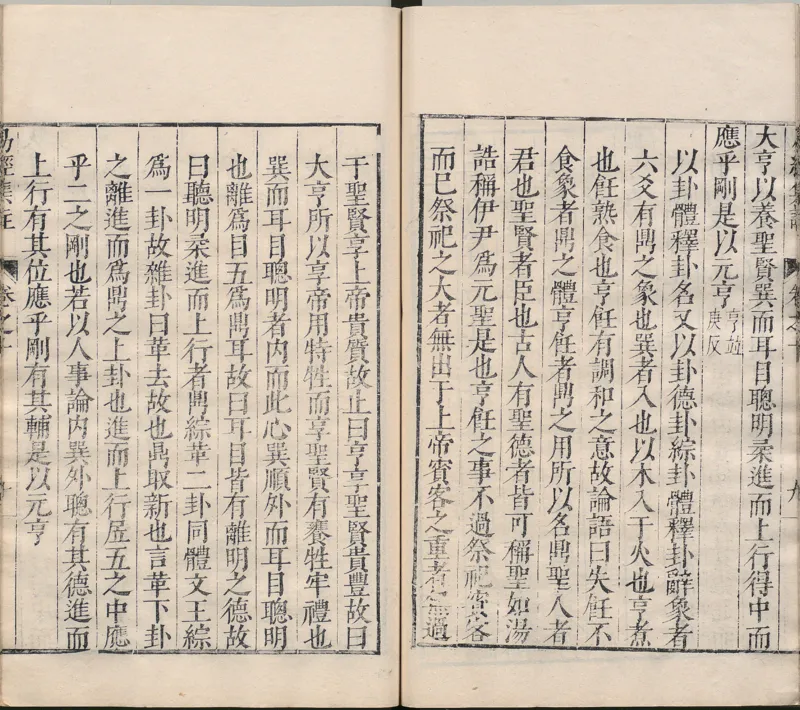 大亨以養聖賢巽而耳目聰明柔進而上行得中而
應乎剛是以元亨亨並庚反
以卦體釋卦名又以卦德卦綜卦體釋卦辭象者
六爻有鼎之象也巽者入也以木入于火也亨煮
也飪熟食也亨飪有調和之意故論語曰失飪不
食象者鼎之體亨飪者鼎之用所以名鼎聖人者
君也聖賢者臣也古人有聖德者皆可稱聖如湯
誥稱伊尹爲元聖是也亨飪之事不過祭祀賓客
而已祭祀之大者無出于上帝賓客之重者無過
于聖賢享上帝貴質故止曰亨享聖賢貴豐故曰
大亨所以享帝用特牲而享聖賢有饔牲牢禮也
巽而耳目聰明者内而此心巽順外而耳目聰明
也離爲目五爲鼎耳故曰耳目皆有離明之德故
曰聰明柔進而上行者鼎綜革二卦同體文王綜
爲一卦故雜卦曰革去故也鼎取新也言革下卦
之離進而爲鼎之上卦也進而上行居五之中應
乎二之剛也若以人事論内巽外聰有其德進而
上行有其位應乎剛有其輔是以元亨
易經集註
卷之十
九